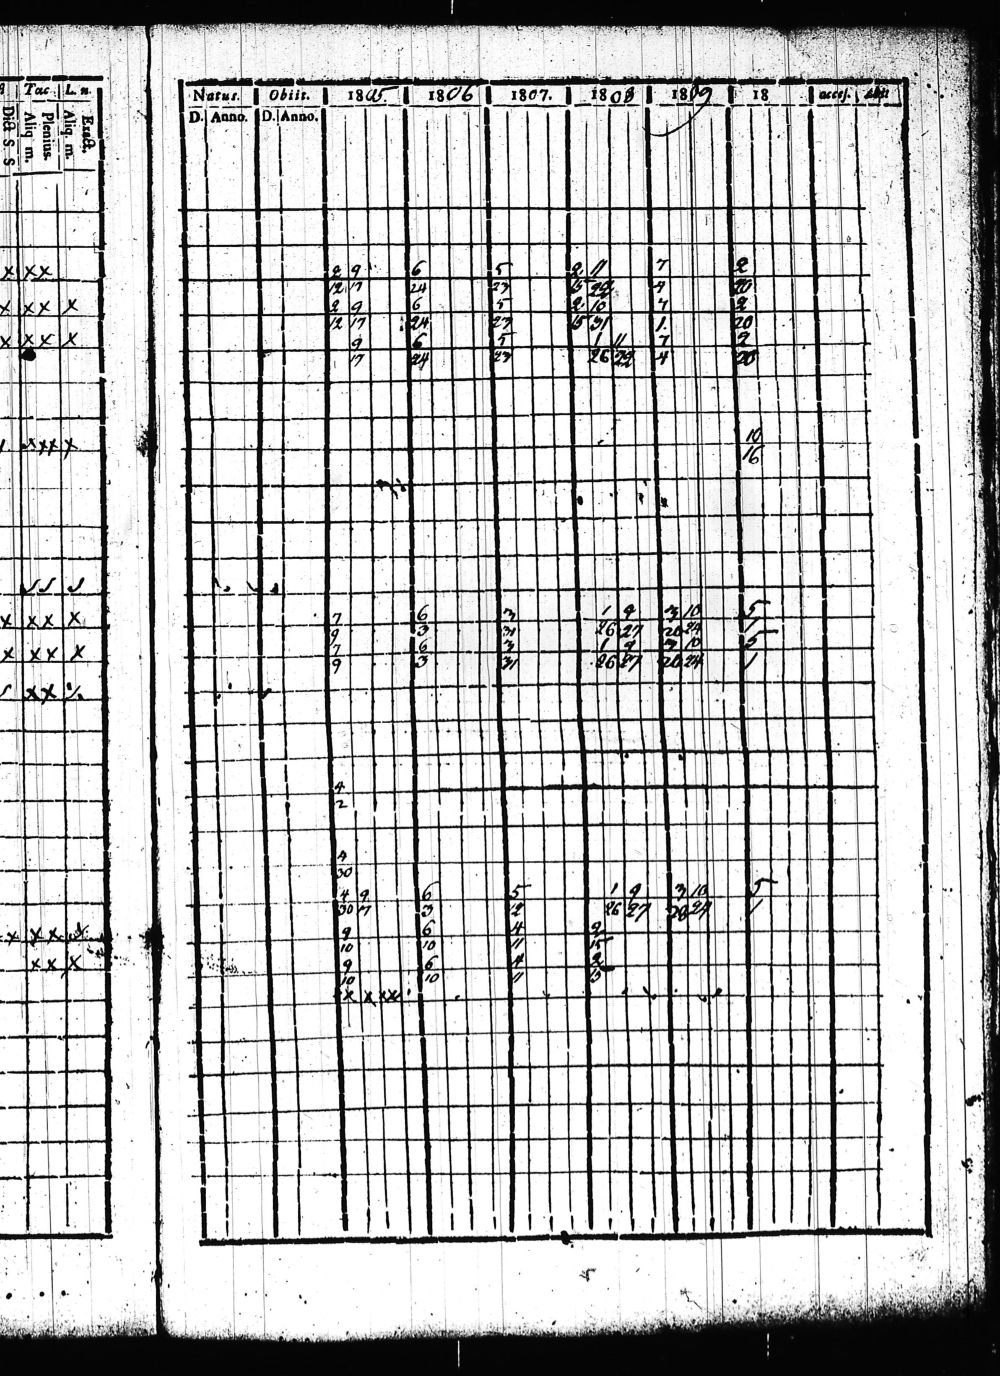 Tac. L. n.
Dict S S Aliq. m. Plenius. Aliq. m. Exact.
Natus. Obiit. 1805. 1806 1807. 1808 1809 18 accss. abiit
D. Anno. D. Anno.
x x x 2 9 6 5 2 11 7 2
12 17 24 23 15 4 20
x x x x 2 9 6 5 2 10 7 2
12 17 24 23 15 31 1. 20
x x x x 9 6 5 1 11 7 2
17 24 23 26 22 4 20
10
x x x x 16
x x x x 7 6 3 1 9 3 10 5
9 3 31 26 27 20 24 1
x x x x 7 6 3 1 9 3 10 5
9 3 31 26 27 20 24 1
x x
4
2
4
30
4 9 6 5 1 9 3 10 5
30 17 3 12 26 27 28 24 1
x x x x 9 6 4 2
10 10 11 15
x x x 9 6 4 2
10 10 11 15
x x x x